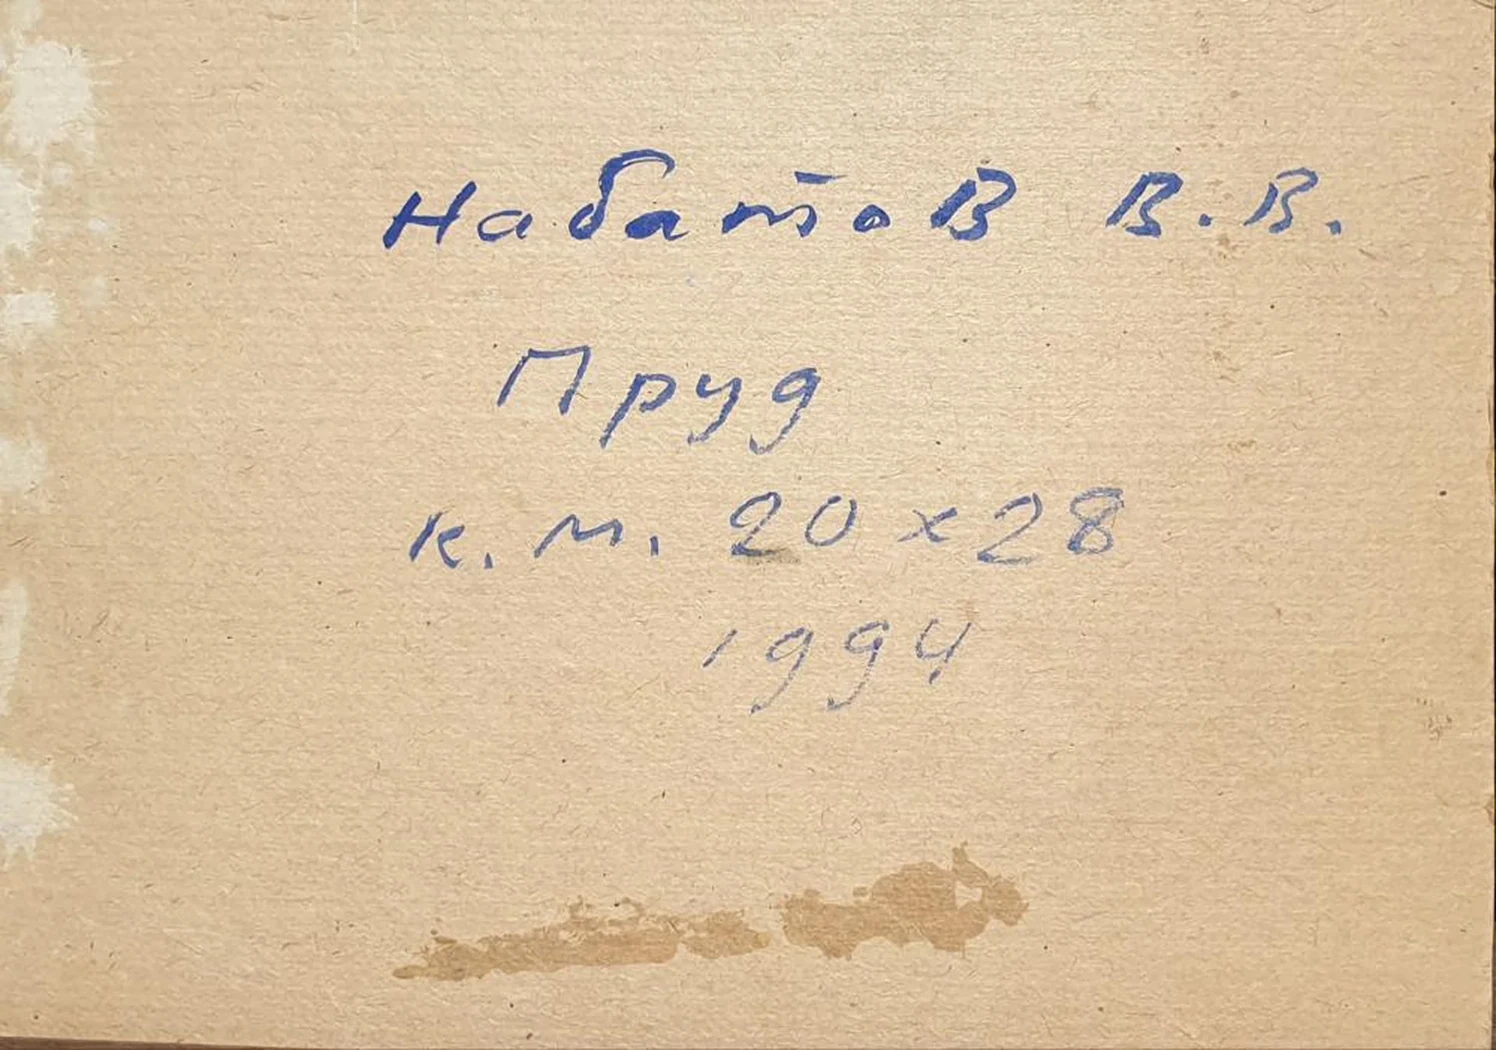 Набатов В.В.
Пруд
к. м. 20х28
1994